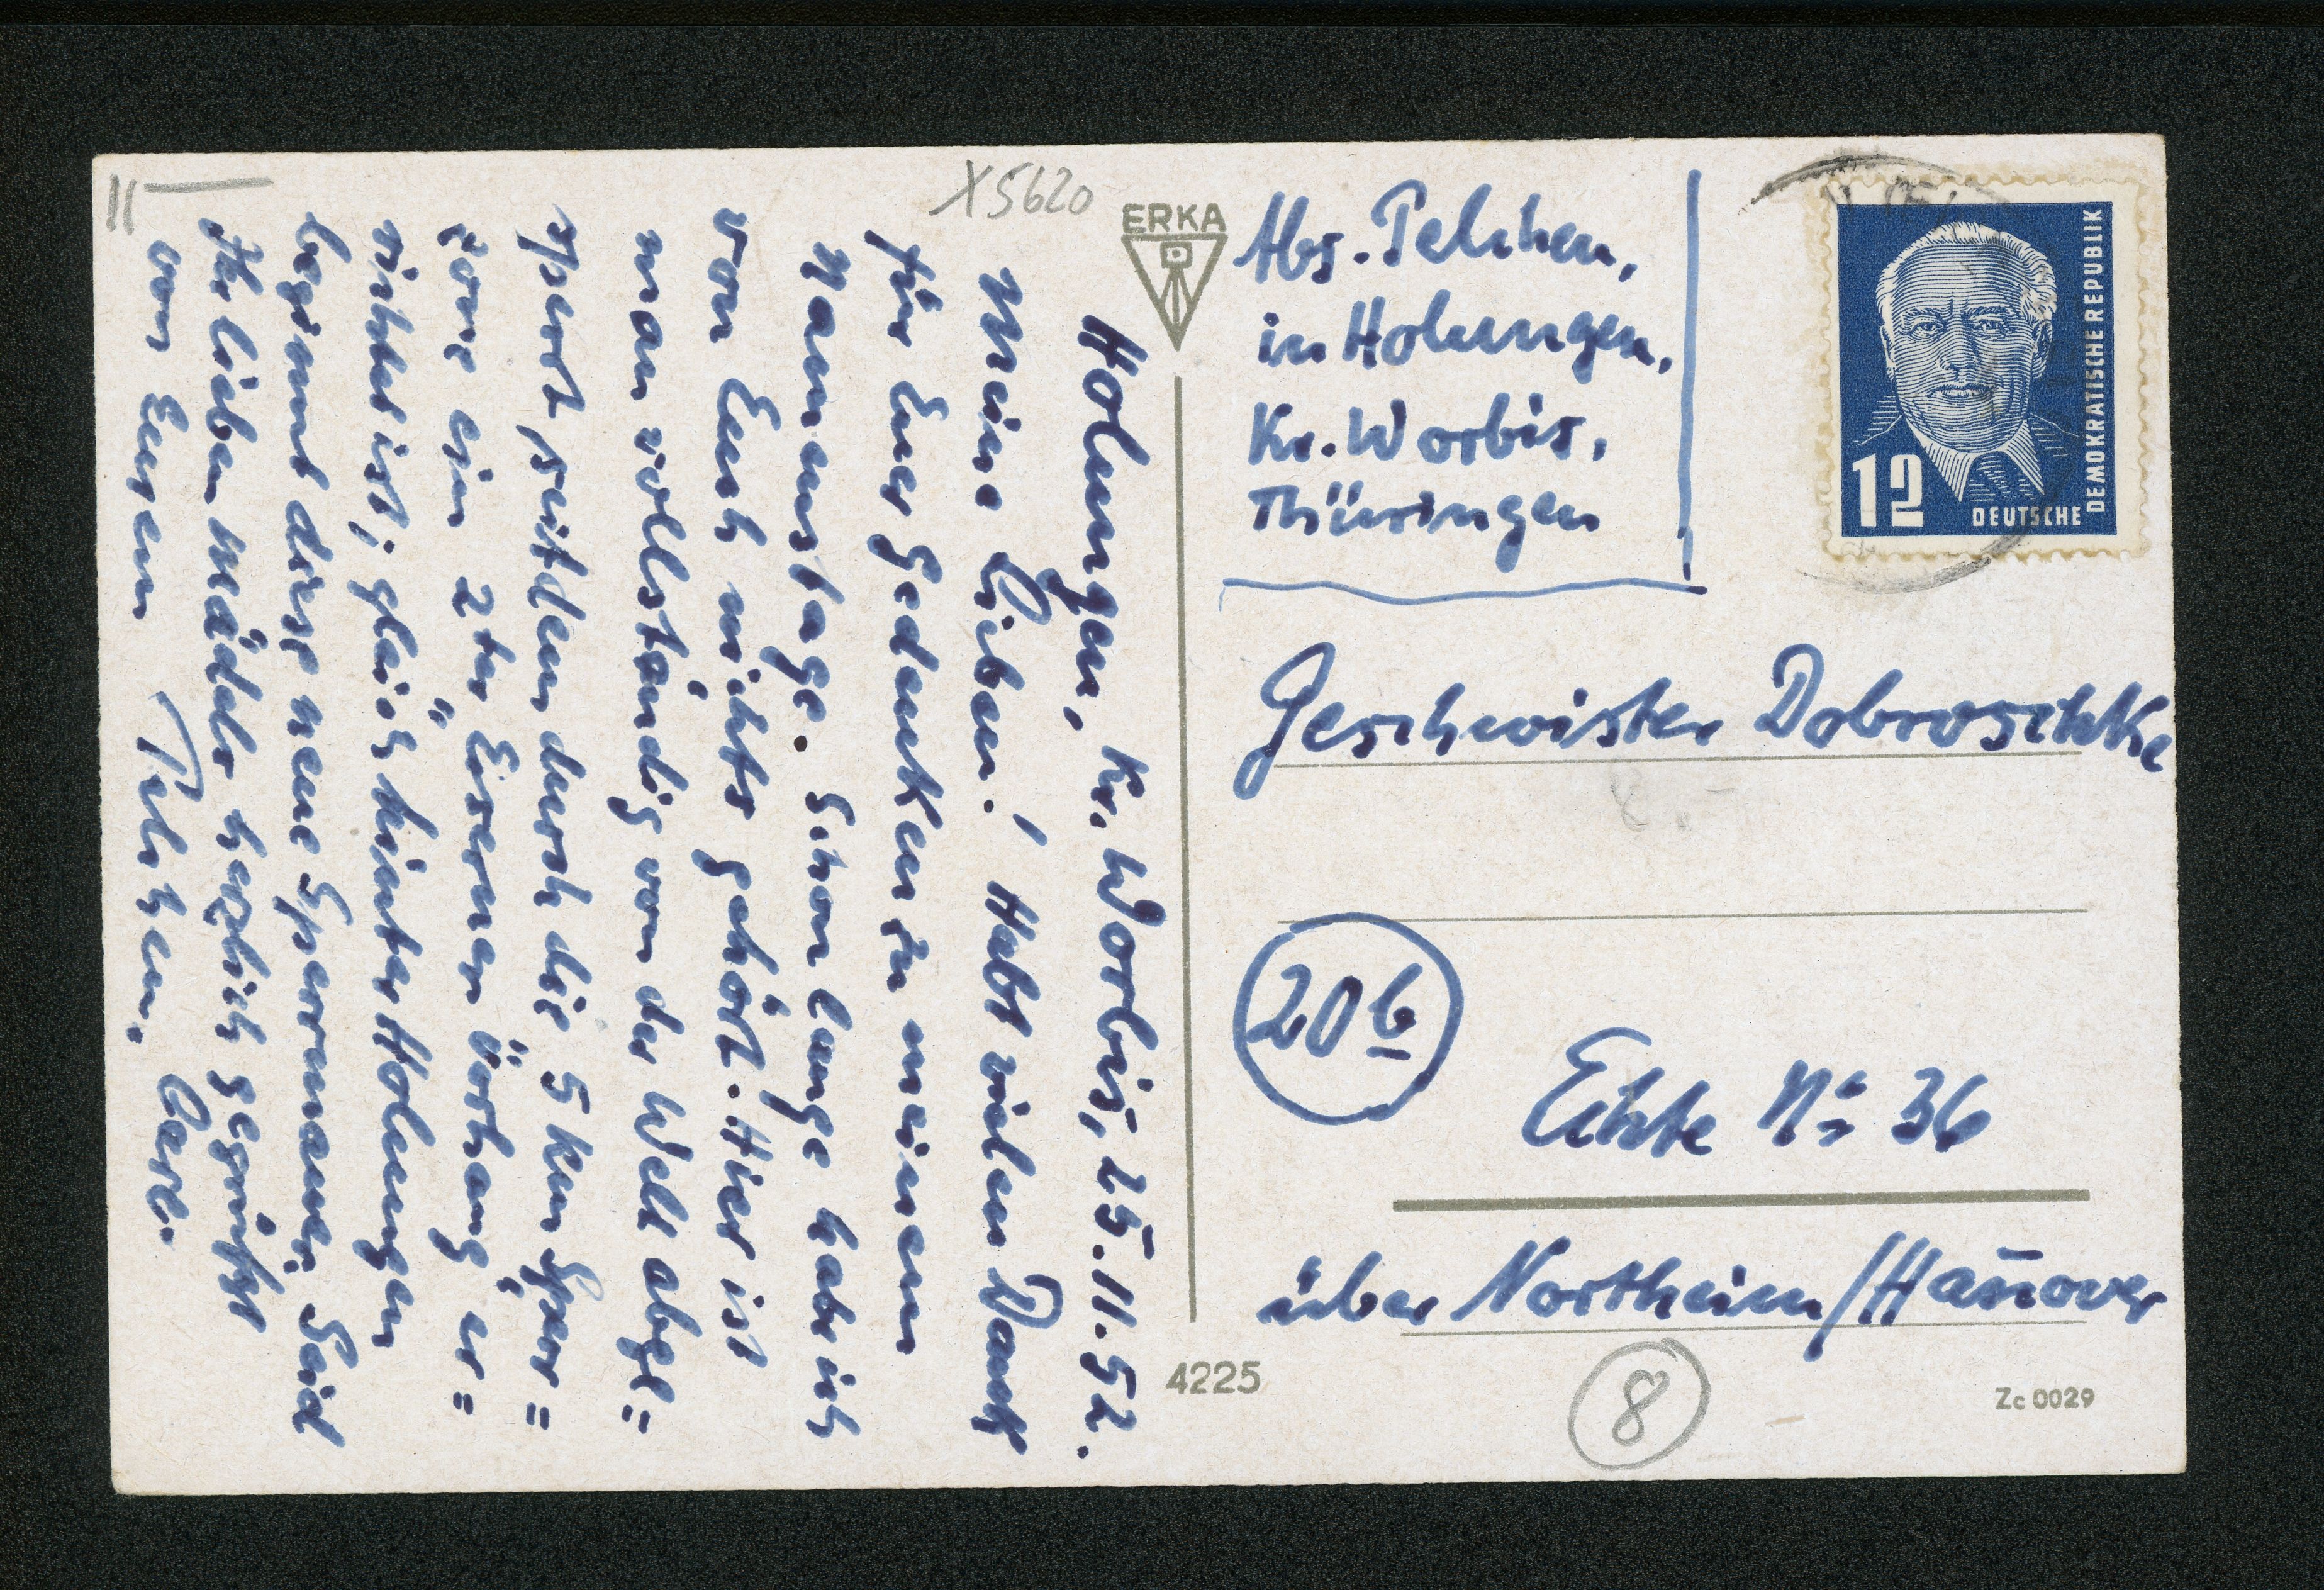 II
X5620
ERKA
Holungen, Kr. Worbis, 25.11.52.
Meine Lieben! Habt vielen Dank
für Euer Gedenken zu meinem
Namenstage. Schon lange habe ich
von Euch nichts gehört. Hier ist
man vollständig von der Welt abge=
sperrt, seitdem durch die 5 km Sper=
zone ein 2ter „Eiserner Vorhang" er=
richtet ist; gleich hinter Holungen
beginnt diese neue Sperrmauer. Seid
Ihr lieben Mädels herzlich gegrüßt
von Eurem Pelchen.
Abs. Pelchen,
in Holungen,
Kr. Worbis,
Thüringen
12
DEUTSCHE
DEMOKRATISCHE REPUBLIK
Geschwister Dobroschke
20b
Echte No 36
über Northeim/Hannover
4225
8
Zc 0029